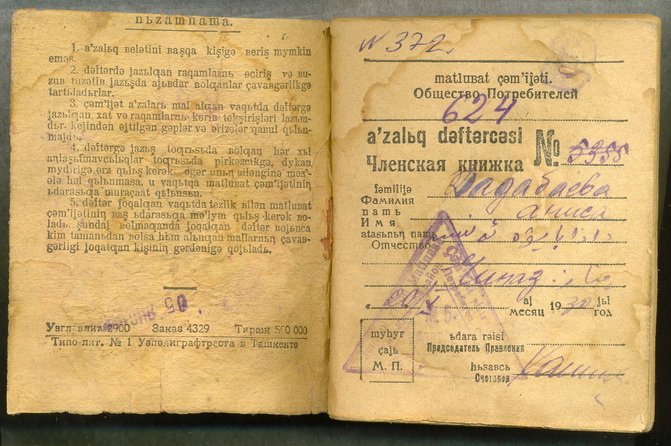 nьzamnama.
1. a'zalьq beletini başqa kişige beriş mymkin
eməs.
2. dəftərdə jazьlƣan raqamlarnь əciriş və bu-
zub tuzətib jazьşda ajьbdar bolƣanlar çavabgərlikgə
tartьladьrlar.
3. çəm'ijət a'zalarь mal alƣan vaqьtda dəftərgə
jazьlƣan xat və raqamlarnь kərib tekşirişləri lazьm-
dьr. kejindən ejtilgən gəplər və ərizələr qabul qьlьn-
majdь.
4. dəftərgə jazьş toƣrьsьda bolƣan hər xьl
aŋlaşьlmavcьlьqlar toƣrьsьda
mydirigə ərz qьlьş kerək. əgər unьŋ
ələ hal qьlьnmasa, u vaqьtda matlubat çəm'ijətiniŋ
ьdarasьƣa muraçaat qьlьnsьn.
5. dəftər joqalƣan vaqьtda tezlik bilən matlubat
çəm'ijətiniŋ baş ьdarasьƣa mə'lym qьlьş kerək bo-
ladь. şundaj bolmaƣanda joqalƣan dəftər bojьnca
kim tamanьdan bolsa həm alьnƣan mallarnьŋ çavab-
gərligi joqatqan kişiniŋ gərdənigə qojьladь.
05
Заказ 4329 Тираж 500 000
Типо-лит. № 1 Узполиграфтреста в Ташкенте
N 372.
matlubat çəm'ijəti.
Общество Потребителей
624
a'zalьq dəftərcəsi
Членская книжка №
fəmilijə Дадабаева
Фамилия
nam
Имя
atasьnьŋ namь
Отчество
Чиназ
aj jьl
месяц 19 год
myhyr
çajь
М. П.
ьdara rəisi
Председатель Правления
hьsabcь
Счетовод